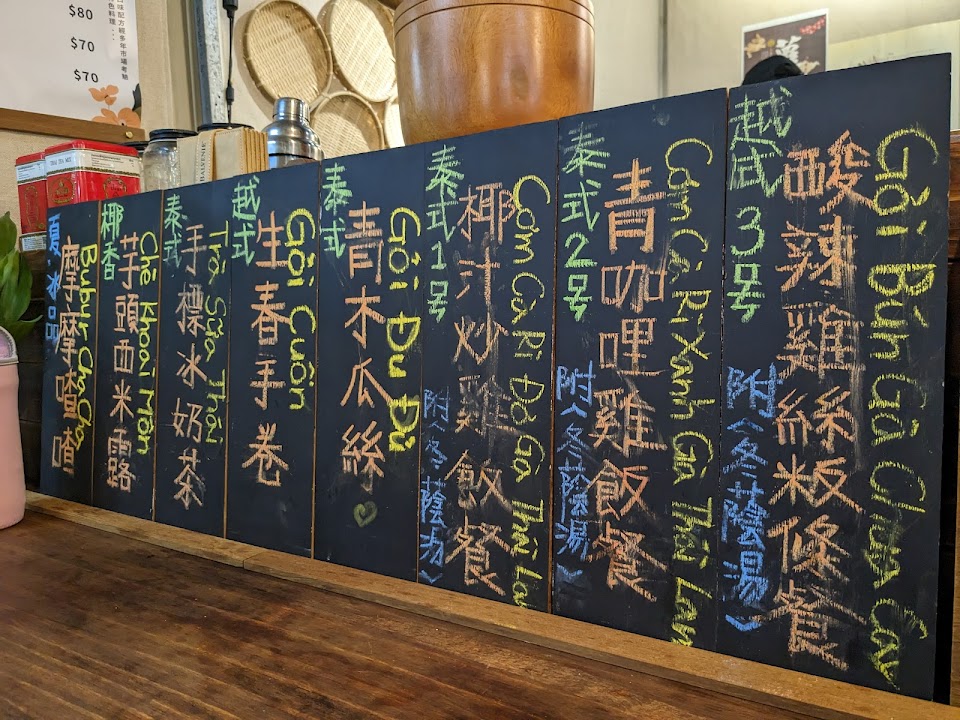 $80
$70
$70
配方經多年市場考驗
THAI TEA MIX
BALVENIE
夏冰品
摩摩喳喳
Bubur Cha Cha
椰香
芋頭西米露
Chè Khoai Môn
泰式
手標冰奶茶
Trà Sữa Thái
越式
生春手卷
Gỏi Cuốn
泰式
青木瓜絲
Gỏi Đu Đủ
泰式1号
椰汁炒雞飯餐
附(冬蔭湯)
Cơm Cà Ri Đỏ Gà Thái Lan
泰式2号
青咖哩雞飯餐
附(冬蔭湯)
Cơm Cà Ri Xanh Gà Thái Lan
越式3号
酸辣雞絲粄條餐
附(冬蔭湯)
Gỏi Bún Gà Chua Cay